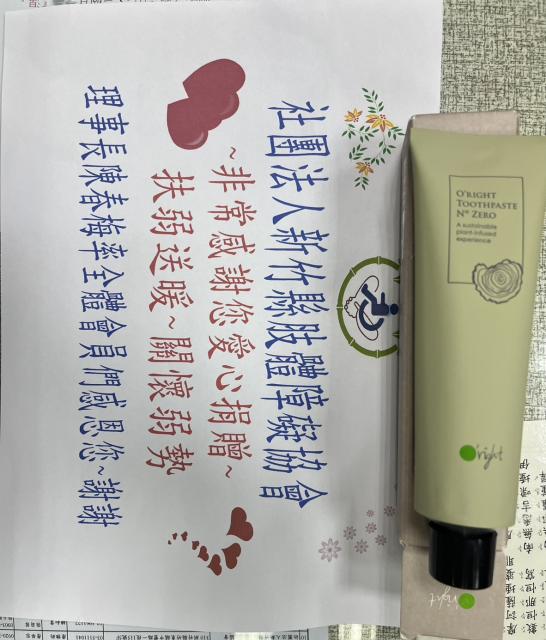 社團法人新竹縣肢體障礙協會
~非常感謝您愛心捐贈~
扶弱送暖~關懷弱勢
理事長陳春梅率全體會員們感恩您~謝謝
O'RIGHT
TOOTHPASTE
Nº ZERO
A sustainable
plant-infused
experience
O'right
O'right